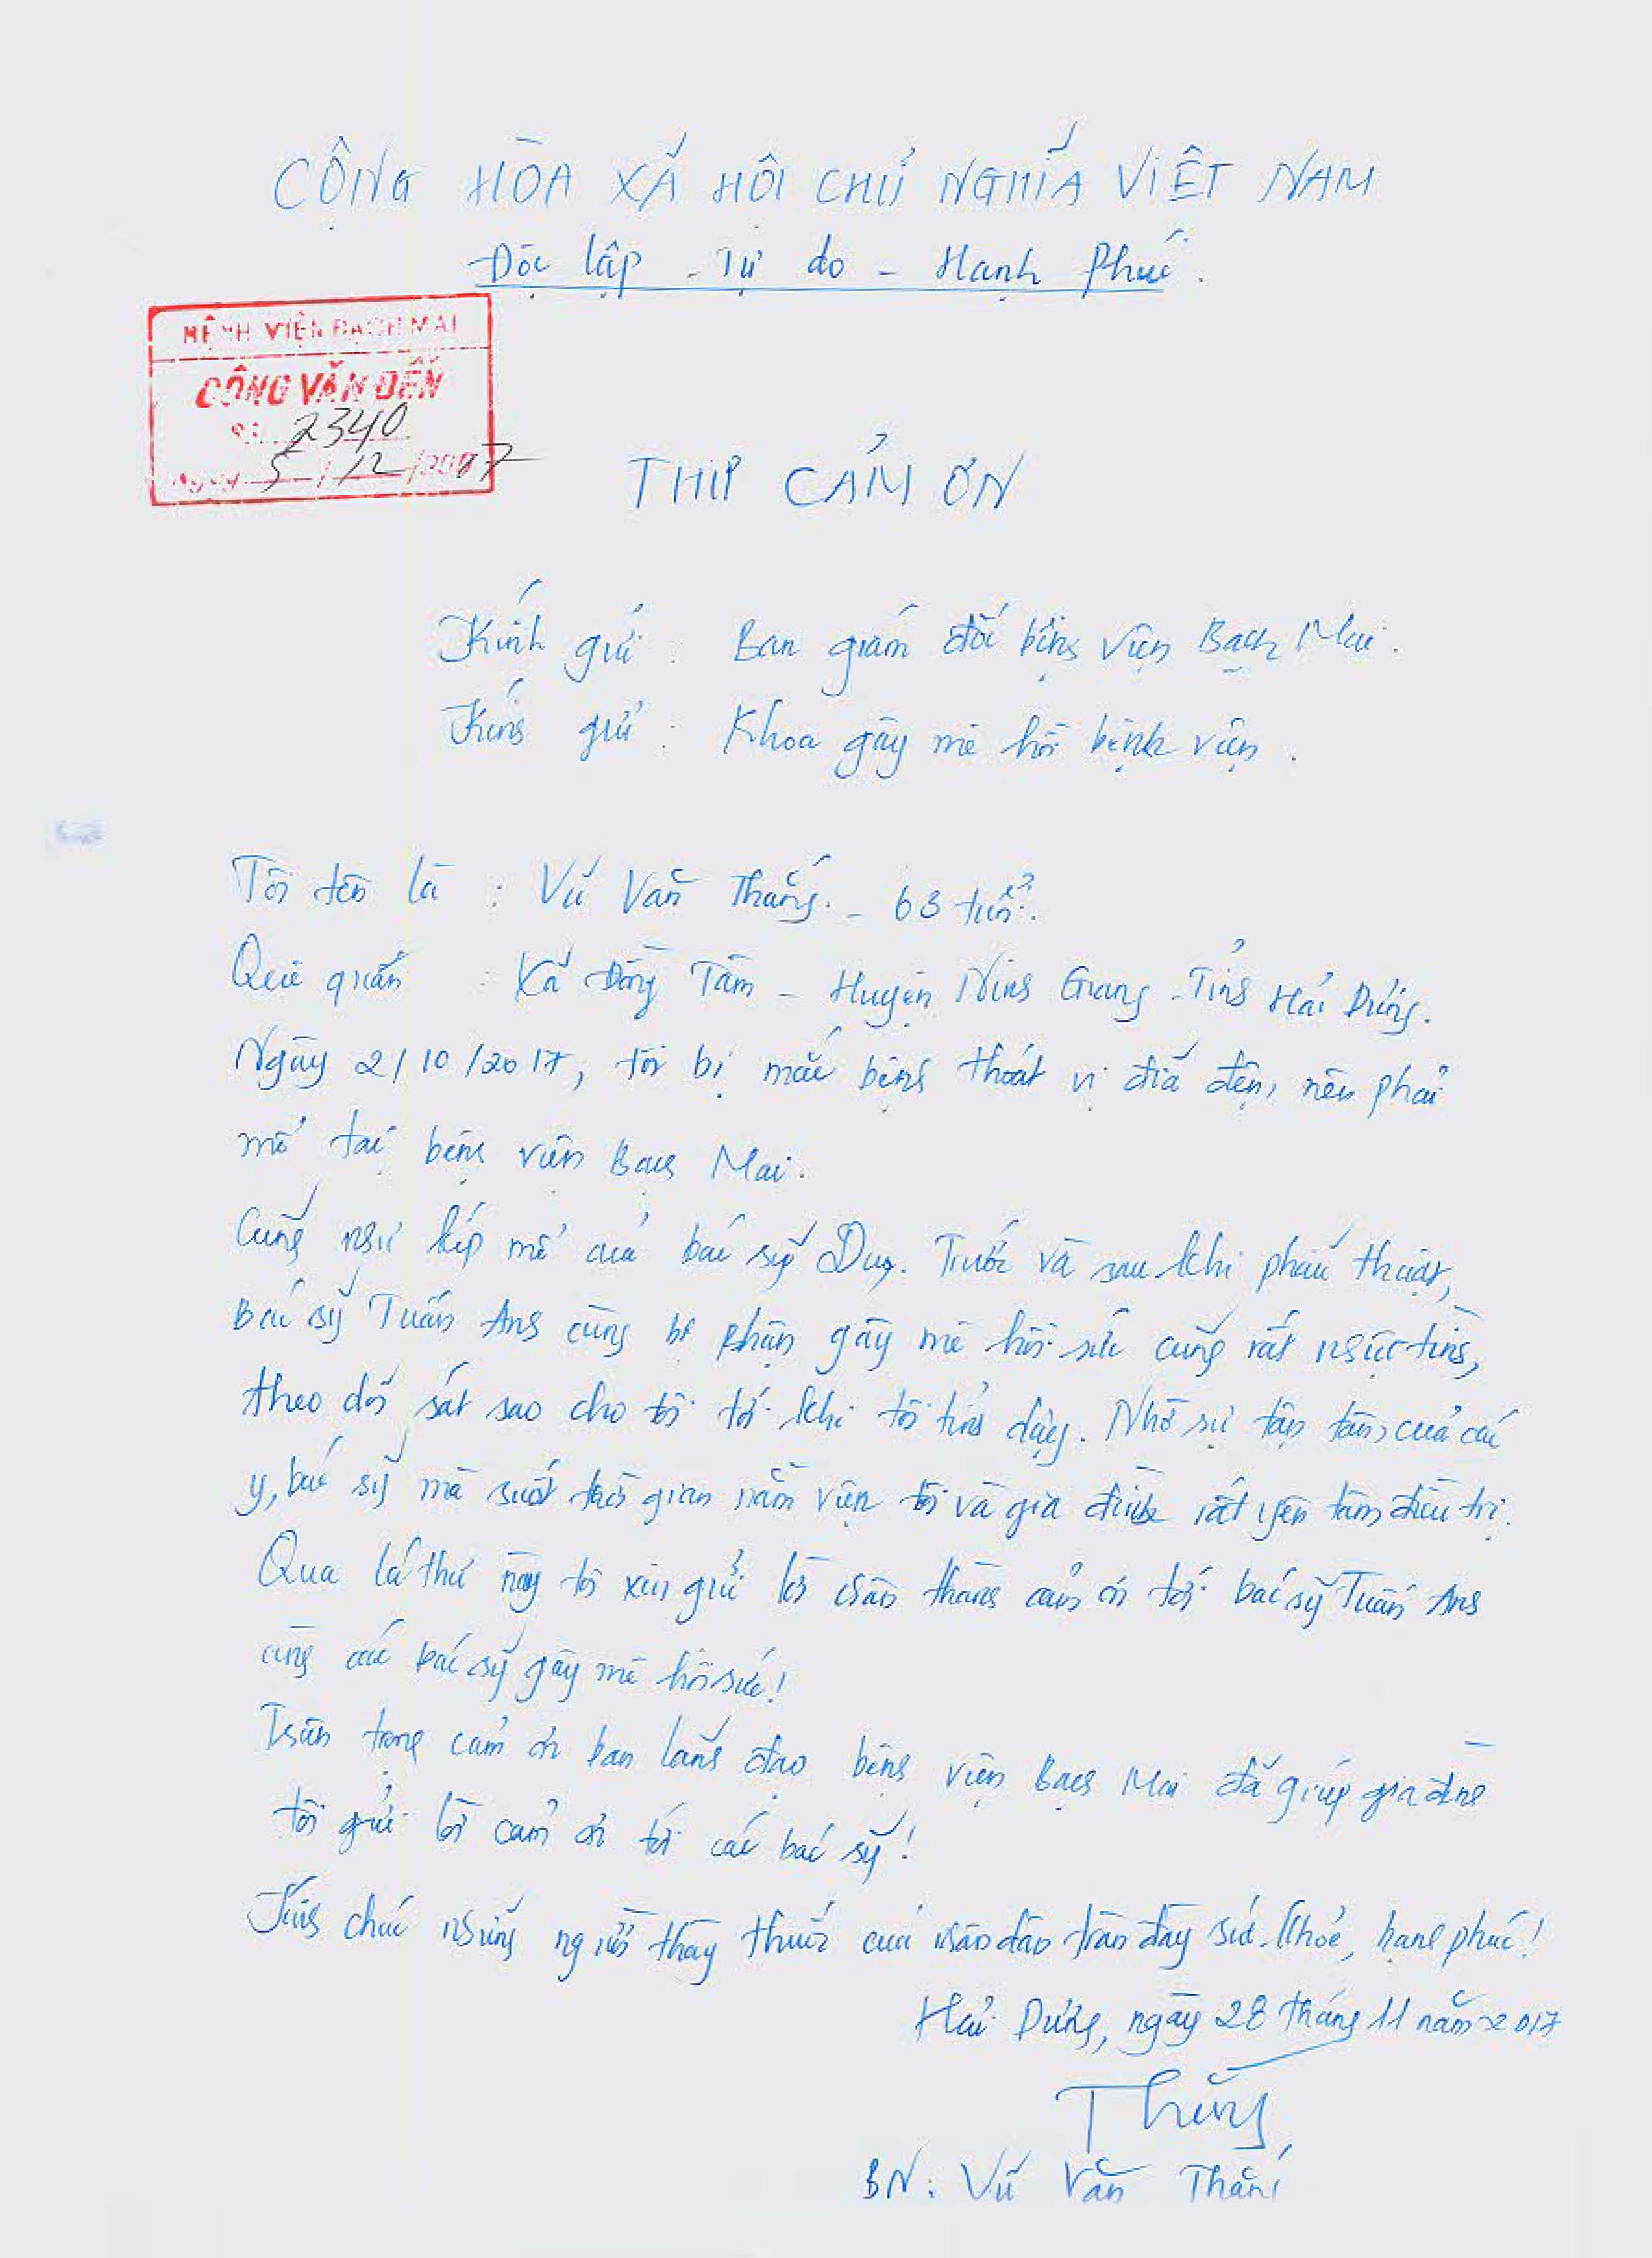 CỘNG HÒA XÃ HỘI CHỦ NGHĨA VIỆT NAM
Độc lập - Tự do - Hạnh Phúc.
BỆNH VIỆN BẠCH MAI
CÔNG VĂN ĐẾN
Số: 2340
Ngày 5/12/2017
THƯ CẢM ƠN
Kính gửi: Ban giám đốc bệnh viện Bạch Mai.
Kính gửi: Khoa gây mê hồi bệnh viện.
Tôi tên là: Vũ Văn Thắng. - 63 tuổi.
Quê quán: Xã Đồng Tâm - Huyện Ninh Giang - Tỉnh Hải Dương.
Ngày 2/10/2017, tôi bị mắc bệnh thoát vị đĩa đệm, nên phải
mổ tại bệnh viện Bạch Mai.
Cũng như kíp mổ của bác sỹ Duy. Trước và sau khi phẫu thuật,
Bác sỹ Tuấn Anh cùng bộ phận gây mê hồi sức cũng rất nhiệt tình,
theo dõi sát sao cho tôi tới khi tôi tỉnh dậy. Nhờ sự tận tâm của các
y, bác sỹ mà suốt thời gian nằm viện tôi và gia đình rất yên tâm điều trị.
Qua lá thư này tôi xin gửi lời chân thành cảm ơn tới bác sỹ Tuấn Anh
cùng các bác sỹ gây mê hồi sức!
Trân trọng cảm ơn ban lãnh đạo bệnh viện Bạch Mai đã giúp gia đình
tôi gửi lời cảm ơn tới các bác sỹ!
Kính chúc những người thầy thuốc của nhân dân tràn đầy sức khỏe, hạnh phúc!
Hải Dương, ngày 28 tháng 11 năm 2017
Thắng
BN: Vũ Văn Thắng